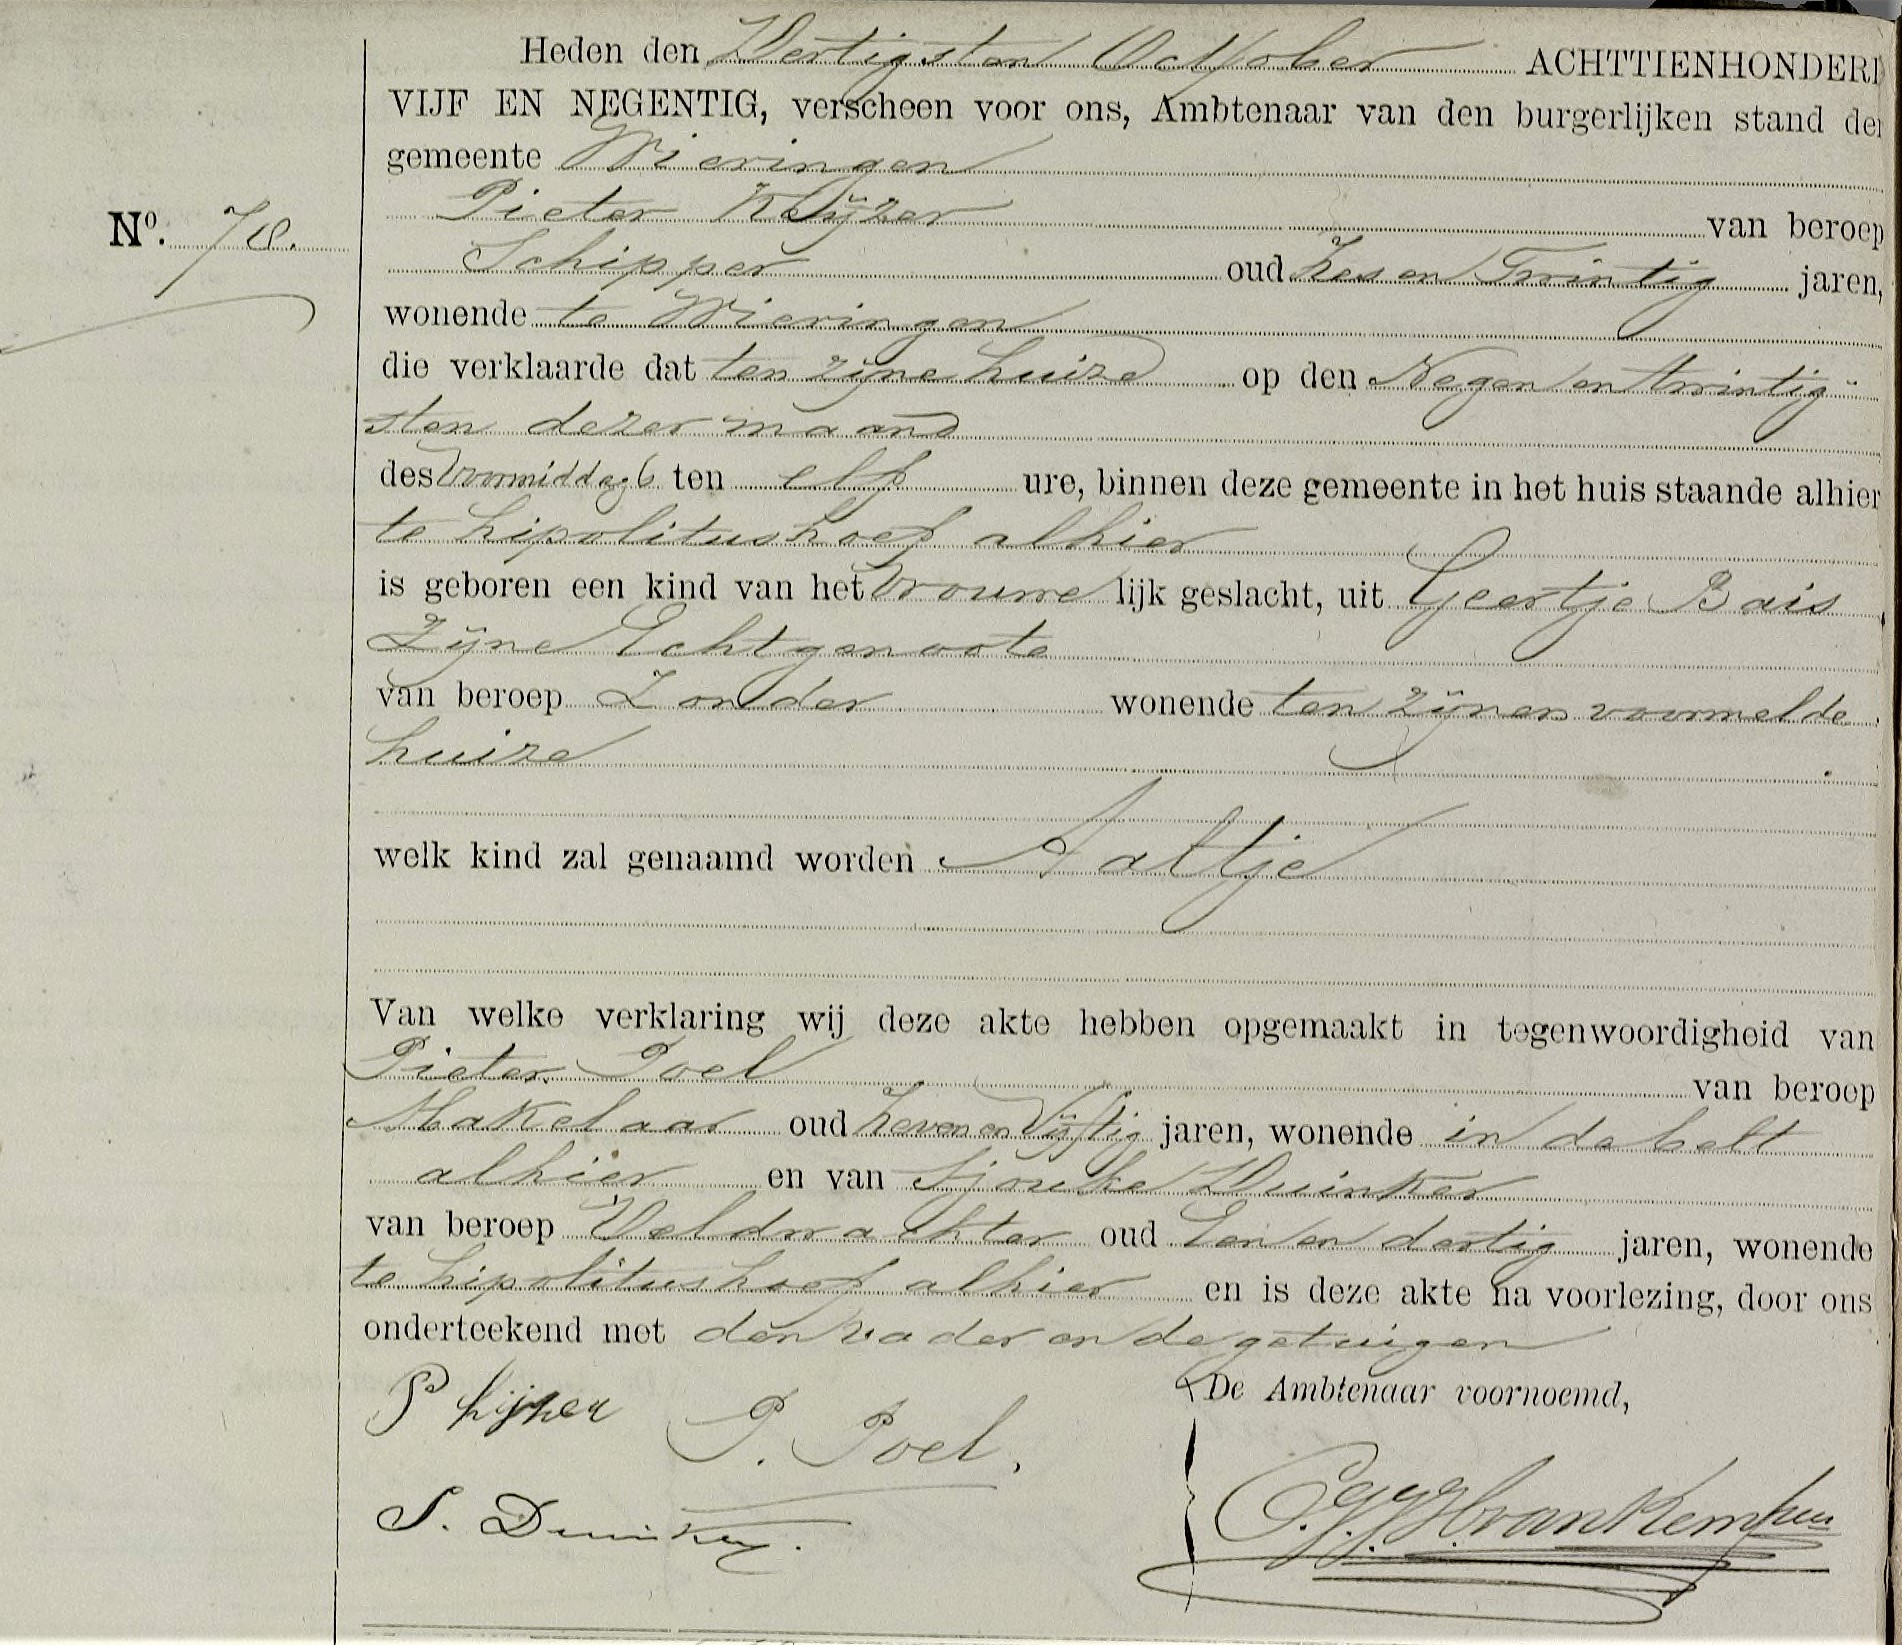 Heden den Dertigsten October ACHTTIENHONDERD
VIJF EN NEGENTIG, verscheen voor ons, Ambtenaar van den burgerlijken stand der
gemeente Wieringen
Pieter Keijzer van beroep
No. 78.
Schipper oud Zes en Twintig jaren,
wonende te Wieringen
die verklaarde dat ten zijne huize op den Negen en twintig-
sten dezer maand
des Voormiddags ten elf ure, binnen deze gemeente in het huis staande alhier
te hipolitushoef alhier
is geboren een kind van het vrouwe lijk geslacht, uit Geertje Bais
Zijne Echtgenoote
van beroep Zonder wonende ten zijnen voormelde
huize
welk kind zal genaamd worden Aaltje
Van welke verklaring wij deze akte hebben opgemaakt in tegenwoordigheid van
Pieter Poel van beroep
Makelaar oud Zeven en Vijftig jaren, wonende in de belt
alhier en van Sjouke Duinker
van beroep Veldwachter oud Een en dertig jaren, wonende
te hipolitushoef alhier en is deze akte na voorlezing, door ons
onderteekend met den vader en de getuigen
De Ambtenaar voornoemd,
P Kijzer P. Poel.
S. Duinker.
van Kemphen